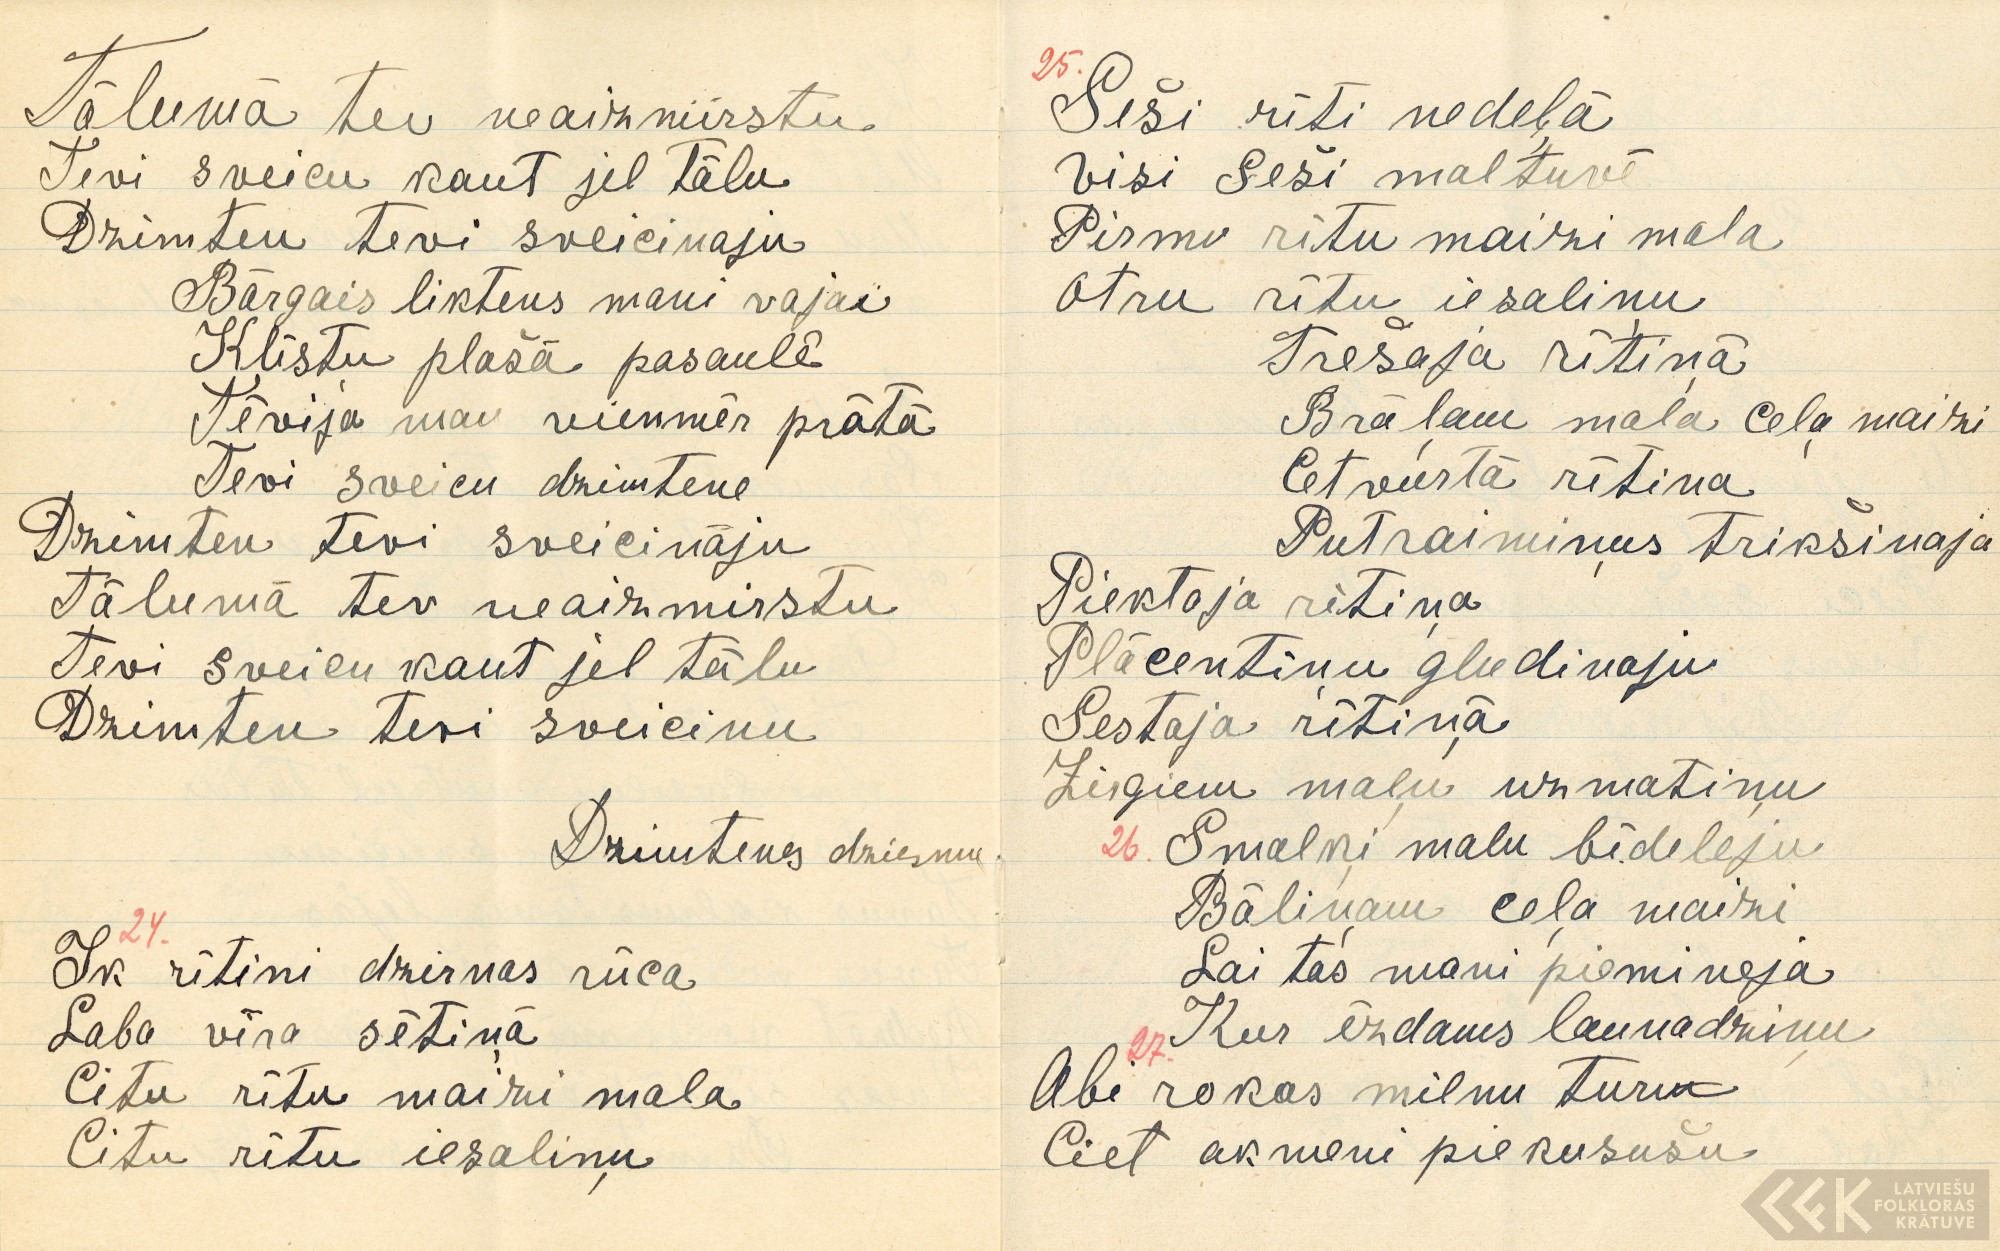 Tālumā tev neaizmirstu
Tevi sveicu kaut jel tālu
Dzimten tevi sveicinaju
Bārgais liktens mani vajai
Klīstu plašā pasaulē
Tēvija man vienmēr prātā
Tevi sveicu dzimtene
Dzimten tevi sveicināju
Tālumā tev neaizmirstu
Tevi sveicu kaut jel tālu
Dzimten tevi sveicinu
Dzimtenes
24.
Ik rītini dzirnas rūca
Laba vīra sētiņā
Citu rītu maizi mala
Citu rītu iesaliņu
25.
Seši rīti nedeļā
Visi Seši maltuvē
Pirmo rītu maizi mala
Otru rītu iesaliņu
Trešaja rītiņā
Brāļam mala ceļa maizi
Cetvurtā rītina
Putraimiņus trikšinaja
Piektaja rītiņa
Plācentiņu gludinaju
Sestaja rītiņā
Zirgiem maļu uzmatiņu
26. Smalki malu bīdeleju
Bāliņam ceļa maizi
Lai tas mani piemineja
Kur ēzdams launadziņu
27.
Abi rokas milnu turu
Ciet akmeni piekususu
LATVIEŠU
FOLKLORAS
KRĀTUVE